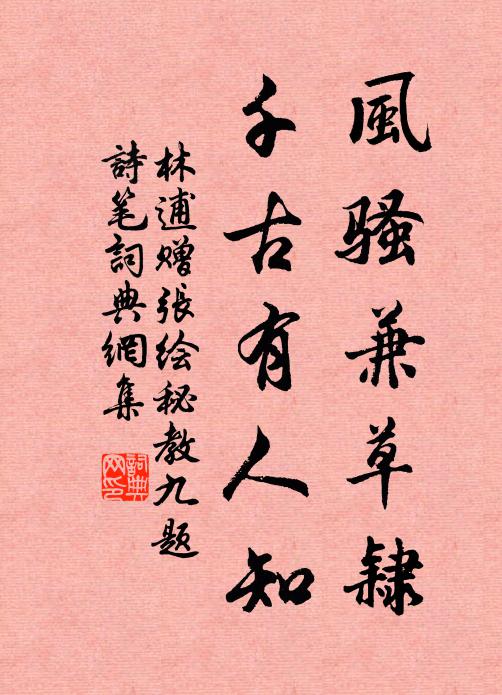 風骚兼草隸
千古有人知
林逋赠張绘秘教九题
詩笔詞典網集
詞典网印